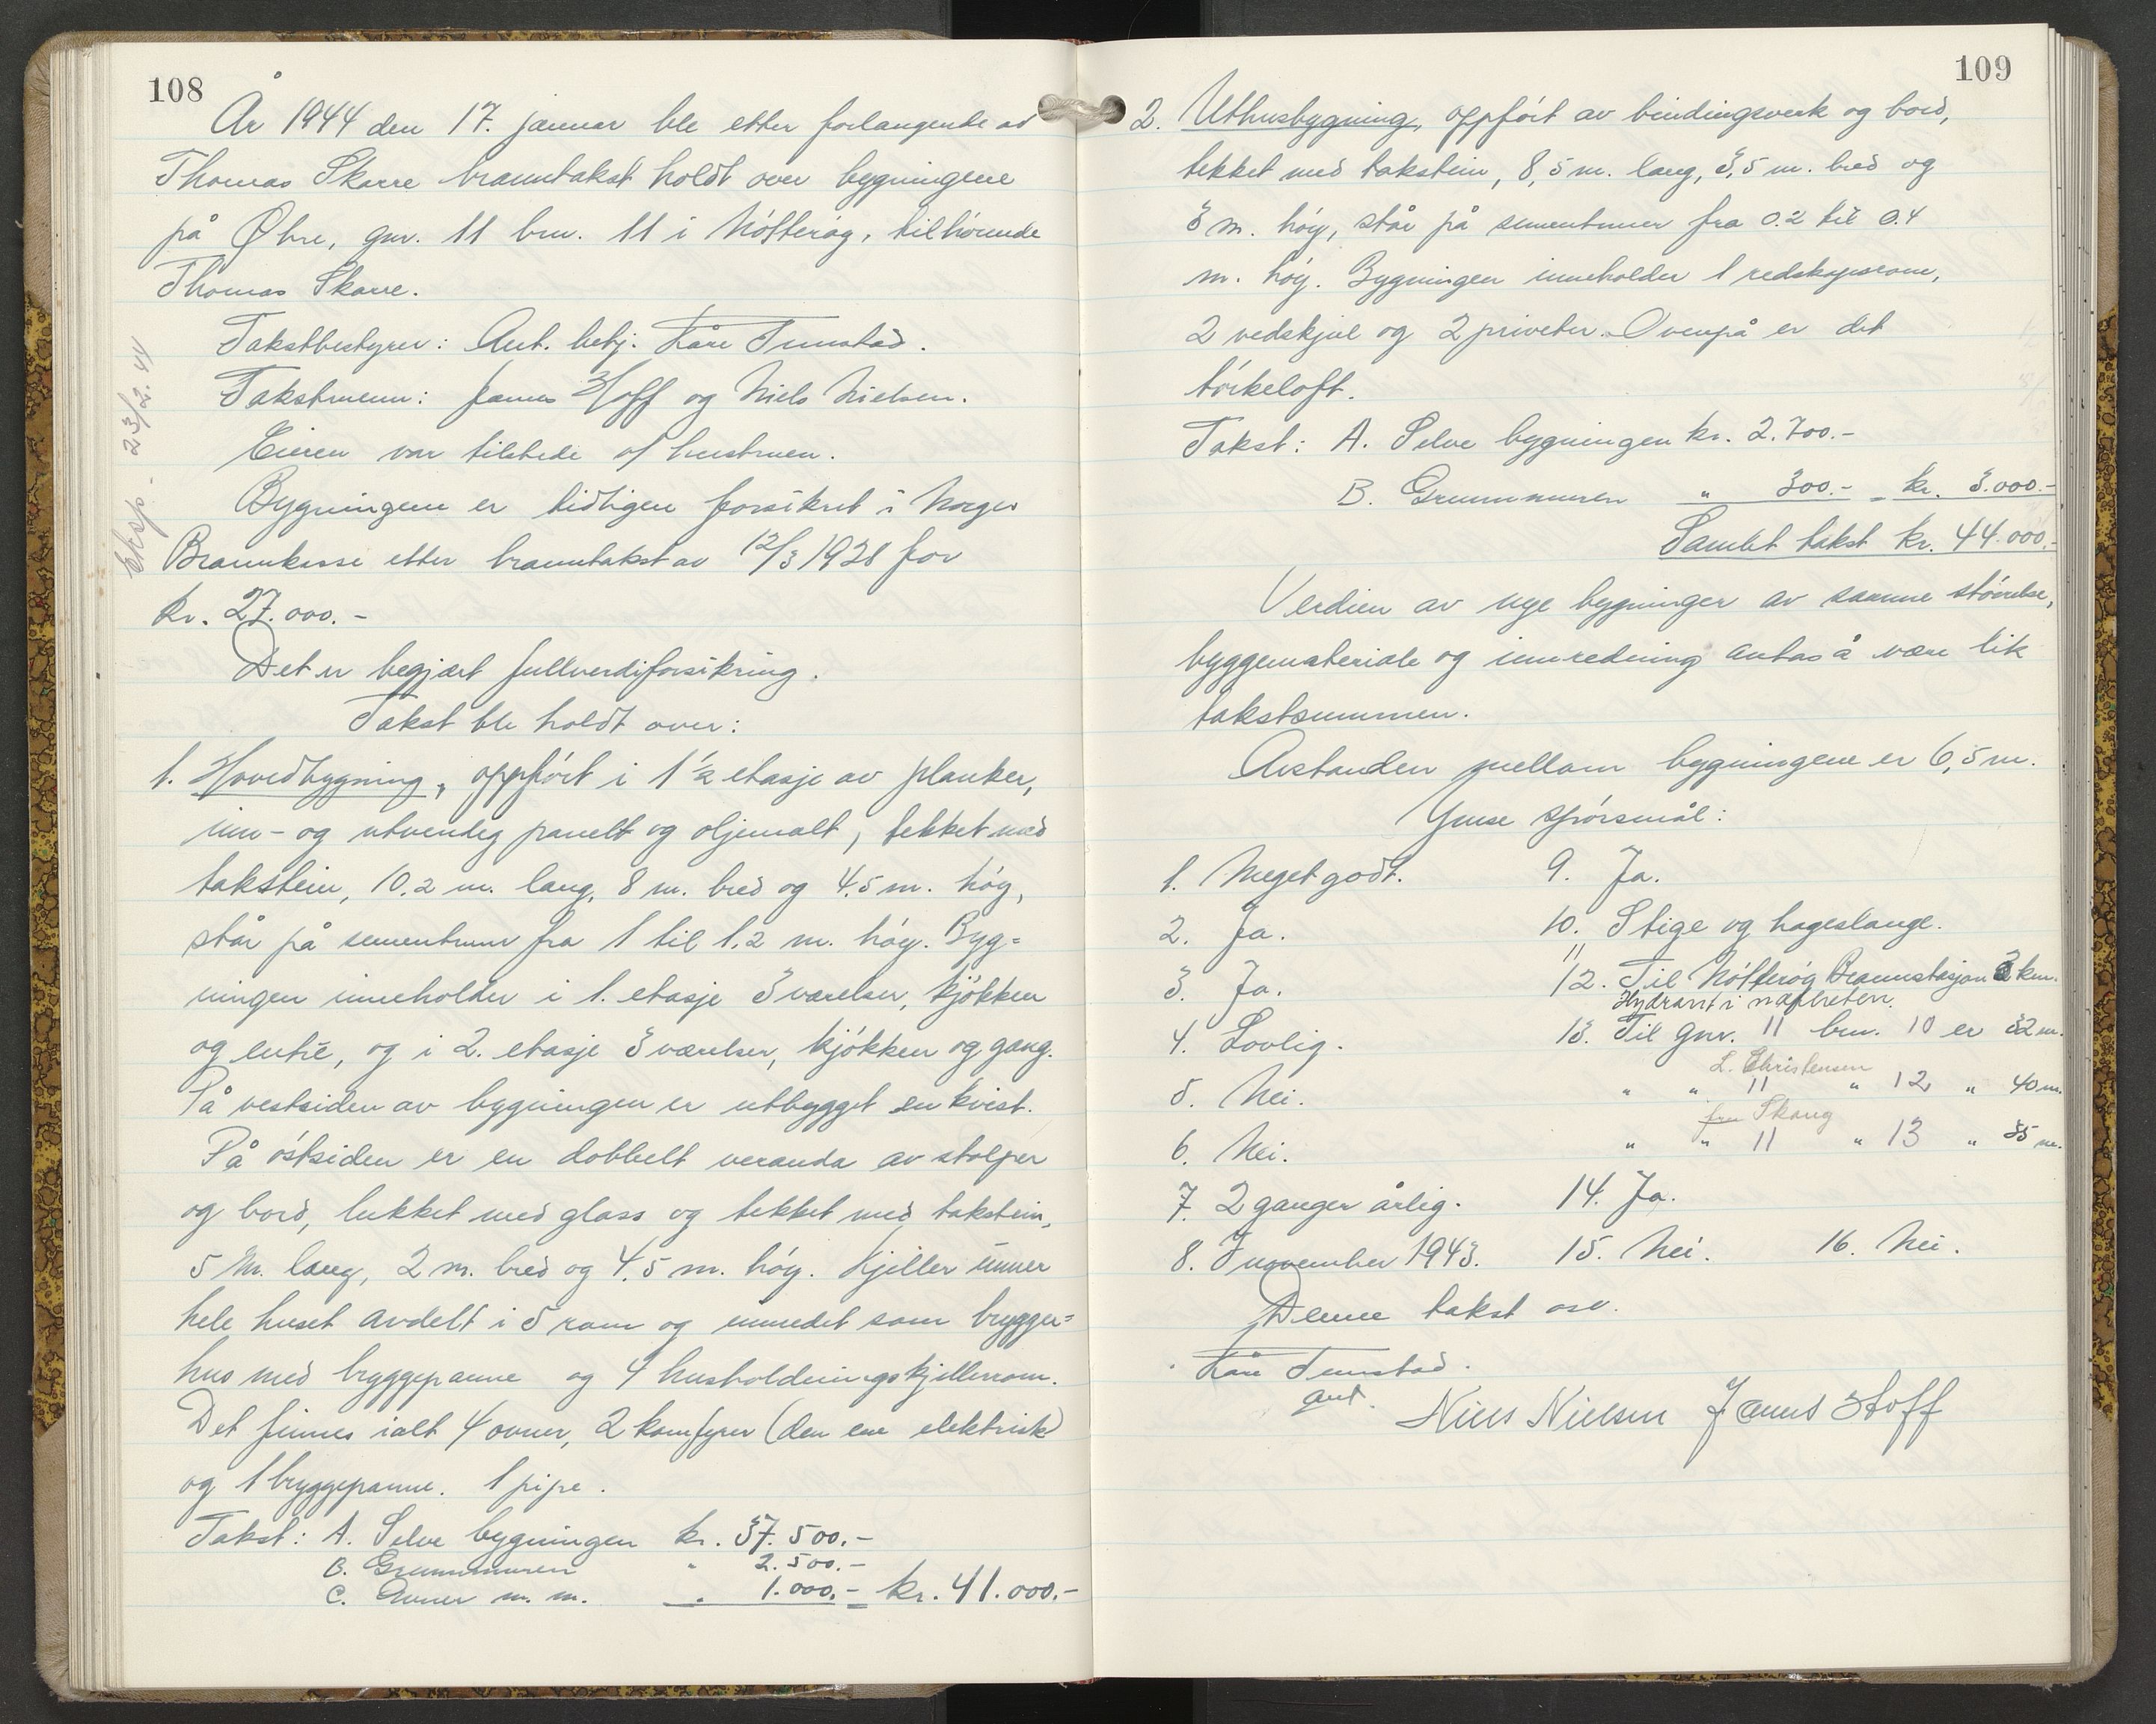 108
År 1944 den 17. januar ble etter forlangende av
Thomas Skarre branntakst holdt over bygningene
på Øbre, gnr. 11 brn. 11 i Nøtterøy, tilhørende
Thomas Skarre.
Takstbestyrer: Aut. betj. Kåre Tunstad.
Takstmenn: James Hoff og Niels Nielsen.
Eieren var tilstede v/ hustruen.
Bygningene er tidligere forsikret i Norges
Brannkasse etter branntakst av 12/3 1928 for
kr. 27.000.-
Det er begjært fullverdiforsikring.
Takst ble holdt over:
1. Hovedbygning, oppført i 1 1/2 etasje av planker,
inn- og utvendig panelt og oljemalt, tekket med
takstein, 10.2 m. lang, 8 m. bred og 4.5 m. høy,
står på sementmur fra 1 til 1.2 m. høy. Byg=
ningen inneholder i 1. etasje 3 værelser, kjøkken
og entré, og i 2. etasje 3 værelser, kjøkken og gang.
På vestsiden av bygningen er utbygget en kvist.
På østsiden er en dobbelt veranda av stolper
og bord, lukket med glass og tekket med takstein,
5 m. lang, 2 m. bred og 4.5 m. høy. Kjeller under
hele huset avdelt i 5 rom og innredet som brygger=
hus med bryggepanne og 4 husholdningskjellerrom.
Det finnes ialt 4 ovner, 2 komfyrer (den ene elektrisk)
og 1 bryggepanne. 1 pipe.
Takst: A. Selve bygningen kr. 37.500.-
B. Grunnmuren " 2.500.-
C. Ovner m. m. " 1.000.- = kr. 41.000.-
Eksp. 23/2.44
109
2. Uthusbygning, oppført av bindingsverk og bord,
tekket med takstein, 8,5 m. lang, 3,5 m. bred og
3 m. høy, står på sementmur fra 0.2 til 0.4
m. høy. Bygningen inneholder 1 redskapsrom,
2 vedskjul og 2 priveter. Ovenpå er det
tørkeloft.
Takst: A. Selve bygningen kr. 2.700.-
B. Grunnmuren " 300.- = kr. 3.000.-
Samlet takst kr. 44.000.-
Verdien av nye bygninger av samme størrelse,
byggemateriale og innredning antas å være lik
takstsummen.
Avstanden mellom bygningene er 6,5 m.
Ymse spørsmål:
1. Meget godt. 9. Ja.
2. Ja. 10. Stige og hageslange.
11
3. Ja. 12. Til Nøtterøy Brannstasjon 3 km.
Hydrant i nærheten.
4. Lovlig. 13. Til gnr. 11 brn. 10 er 32 m.
L. Christensen
5. Nei. " " 11 " 12 " 40 m.
fru Skaug
6. Nei. " " 11 " 13 " 35 m.
7. 2 ganger årlig. 14. Ja.
8. I november 1943. 15. Nei. 16. Nei.
Denne takst osv.
Kåre Tunstad.
aut.
Niels Nielsen James Hoff